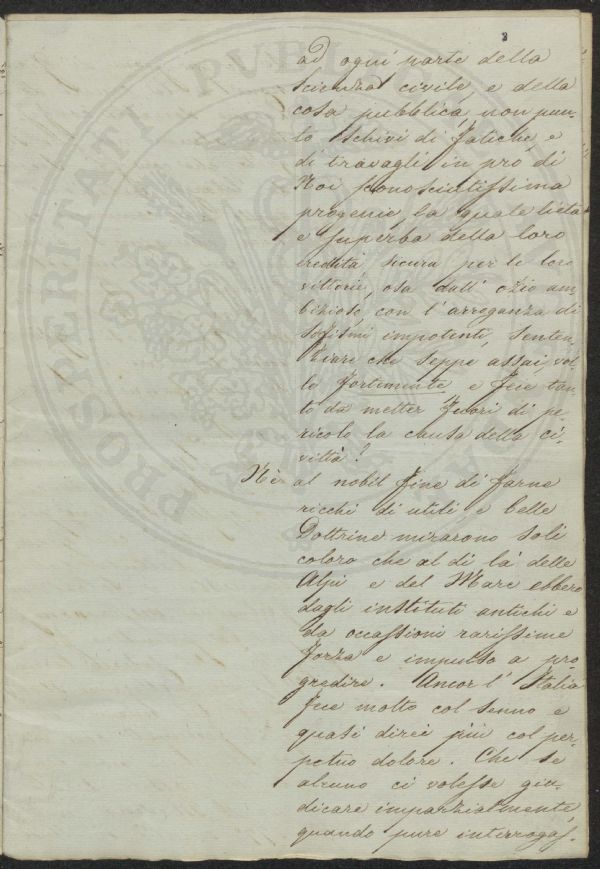 ad ogni parte della
scienza civile, e della
cosa pubblica, non pun-
to schivi di fatiche e
di travagli in pro di
Noi sconoscentissima
progenie, la quale lieta
e superba della loro
eredità, sicura per le loro
vittorie, osa dall' ozio am-
bizioso, con l' arroganza di
sofismi impotenti, senten-
ziare che seppe assai, vol-
le fortemente e fece tan-
to da metter fuori di pe-
ricolo la causa della ci-
viltà!
Nè al nobil fine di farne
ricchi di utili e belle
Dottrine mirarono soli
coloro che al di là delle
Alpi e del Mare ebbero
dagli instituti antichi e
da occassioni rarissime
forza e impulso a pro-
gredire. Ancor l' Italia
fece molto col senno e
quasi direi più col per-
petuo dolore. Che se
alcuno ci volesse giu-
dicare imparzialmente,
quando pure interrogas-
PROSPERITATI PUBLICAE